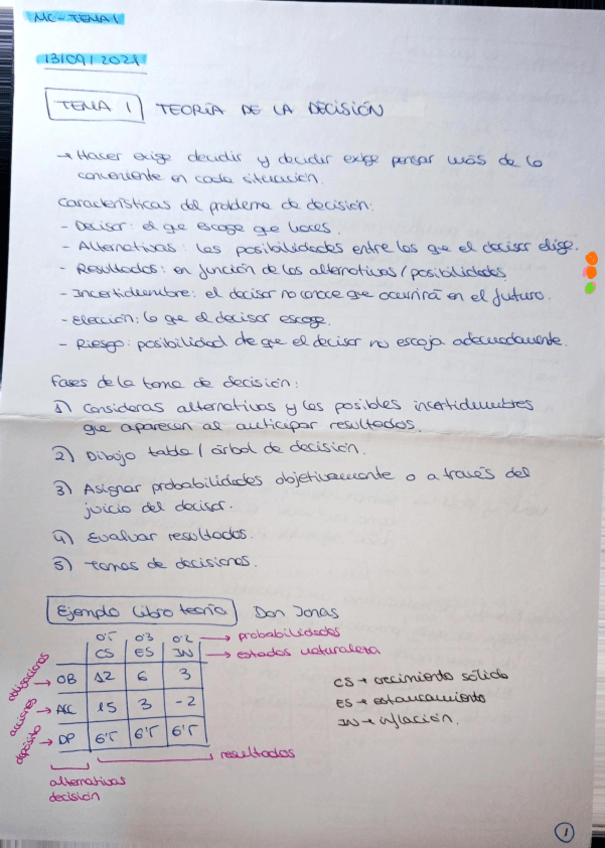 MC - TEMA 1
13/09/2021
TEMA 1 TEORÍA DE LA DECISIÓN
→ Hacer exige decidir y decidir exige pensar más de lo
conveniente en cada situación.
Características del problema de decisión:
- Decisor: el que escoge que haces.
- Alternativas: las posibilidades entre las que el decisor elige.
- Resultados: en función de las alternativas/posibilidades.
- Incertidumbre: el decisor no conoce que ocurrirá en el futuro.
- Elección: lo que el decisor escoge.
- Riesgo: posibilidad de que el decisor no escoja adecuadamente.
Fases de la toma de decisión:
1) Consideras alternativas y las posibles incertidumbres
que aparecen al anticipar resultados.
2) Dibujo tabla / árbol de decisión.
3) Asignar probabilidades objetivamente o a través del
juicio del decisor.
4) Evaluar resultados.
5) Tomas de decisiones.
Ejemplo libro teoría Don Jonás
0'5 0'3 0'2 → probabilidades
CS ES IN → estados naturaleza
obligaciones → OB 12 6 3
acciones → AC 15 3 -2
depósito → DP 6'5 6'5 6'5
CS → crecimiento sólido
ES → estancamiento
IN → inflación.
resultados
alternativas
decisión
1